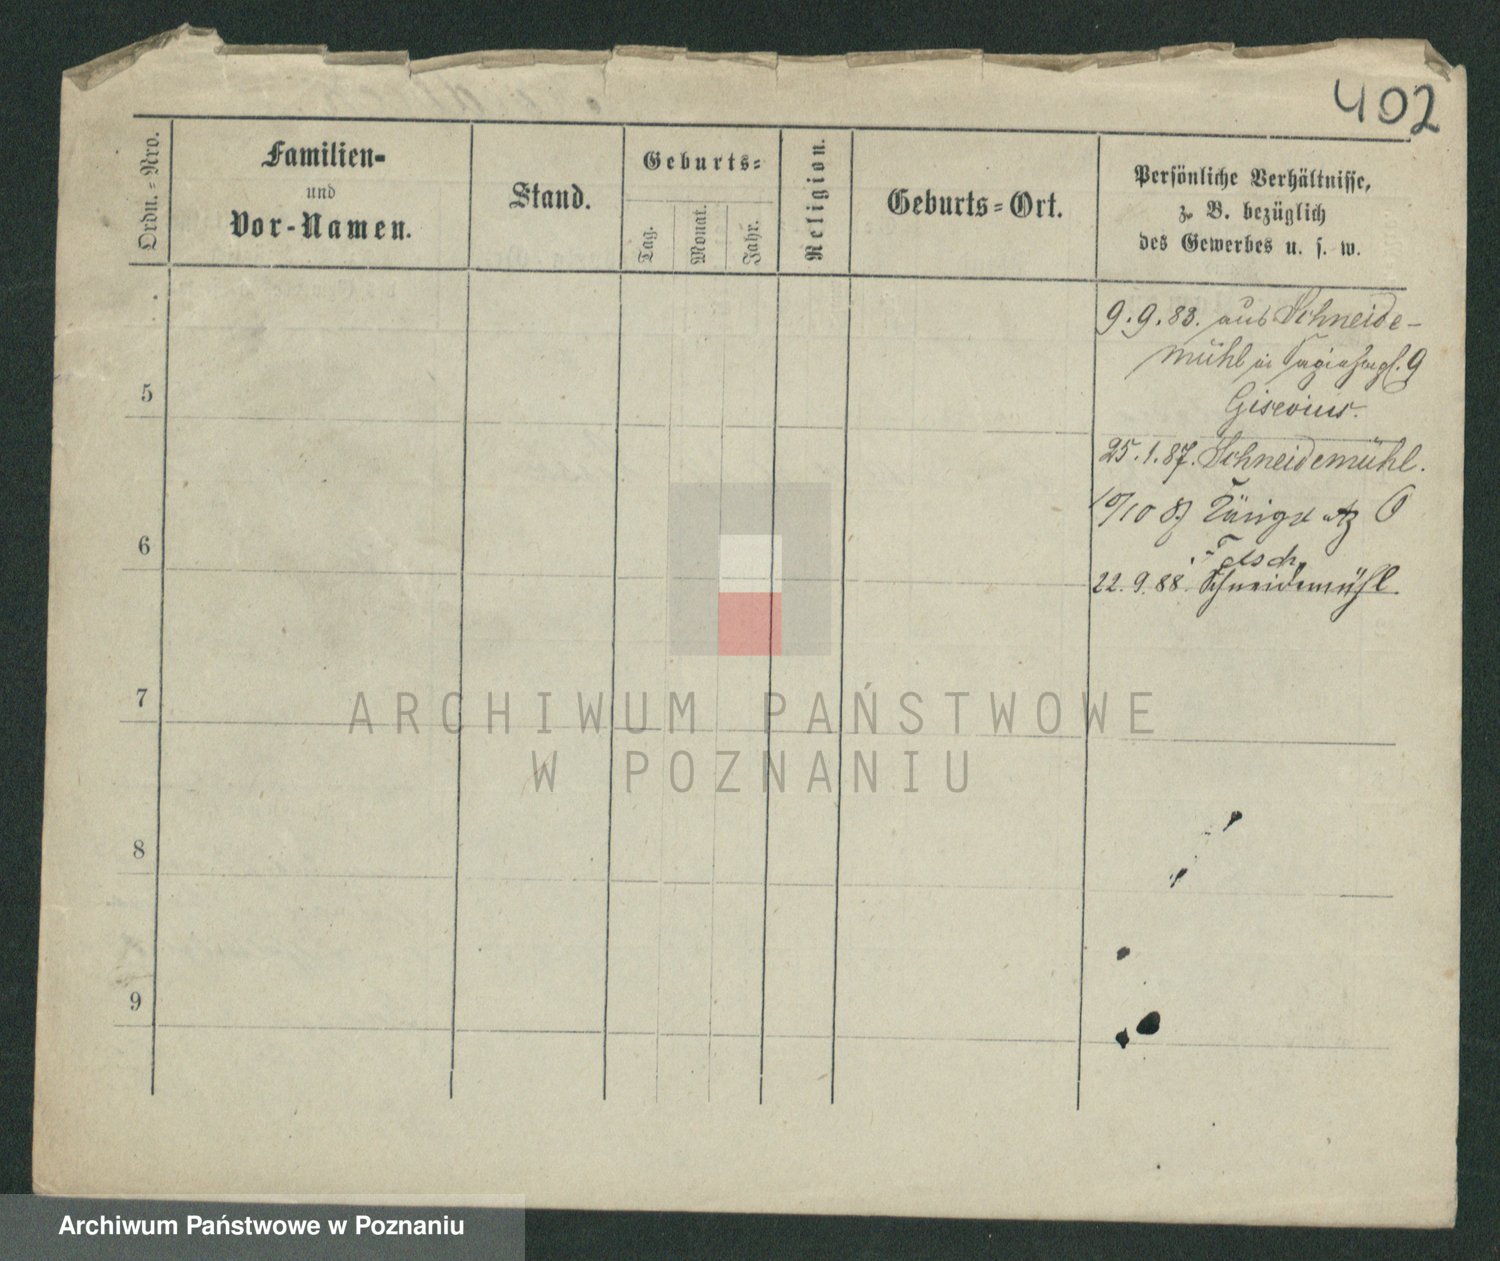 402
Ordn.=Nro.
Familien-
und
Vor-Namen.
Stand.
Geburts-
Tag.
Monat.
Jahr.
Religion.
Geburts-Ort.
Persönliche Verhältnisse,
z. B. bezüglich
des Gewerbes u. s. w.
9.9.83. aus Schneide-
mühl in 9
Gisevius.
5
25.1.87. Schneidemühl.
6
22.9.88. Schneidemühl.
7
8
9
ARCHIWUM PAŃSTWOWE
W POZNANIU
Archiwum Państwowe w Poznaniu